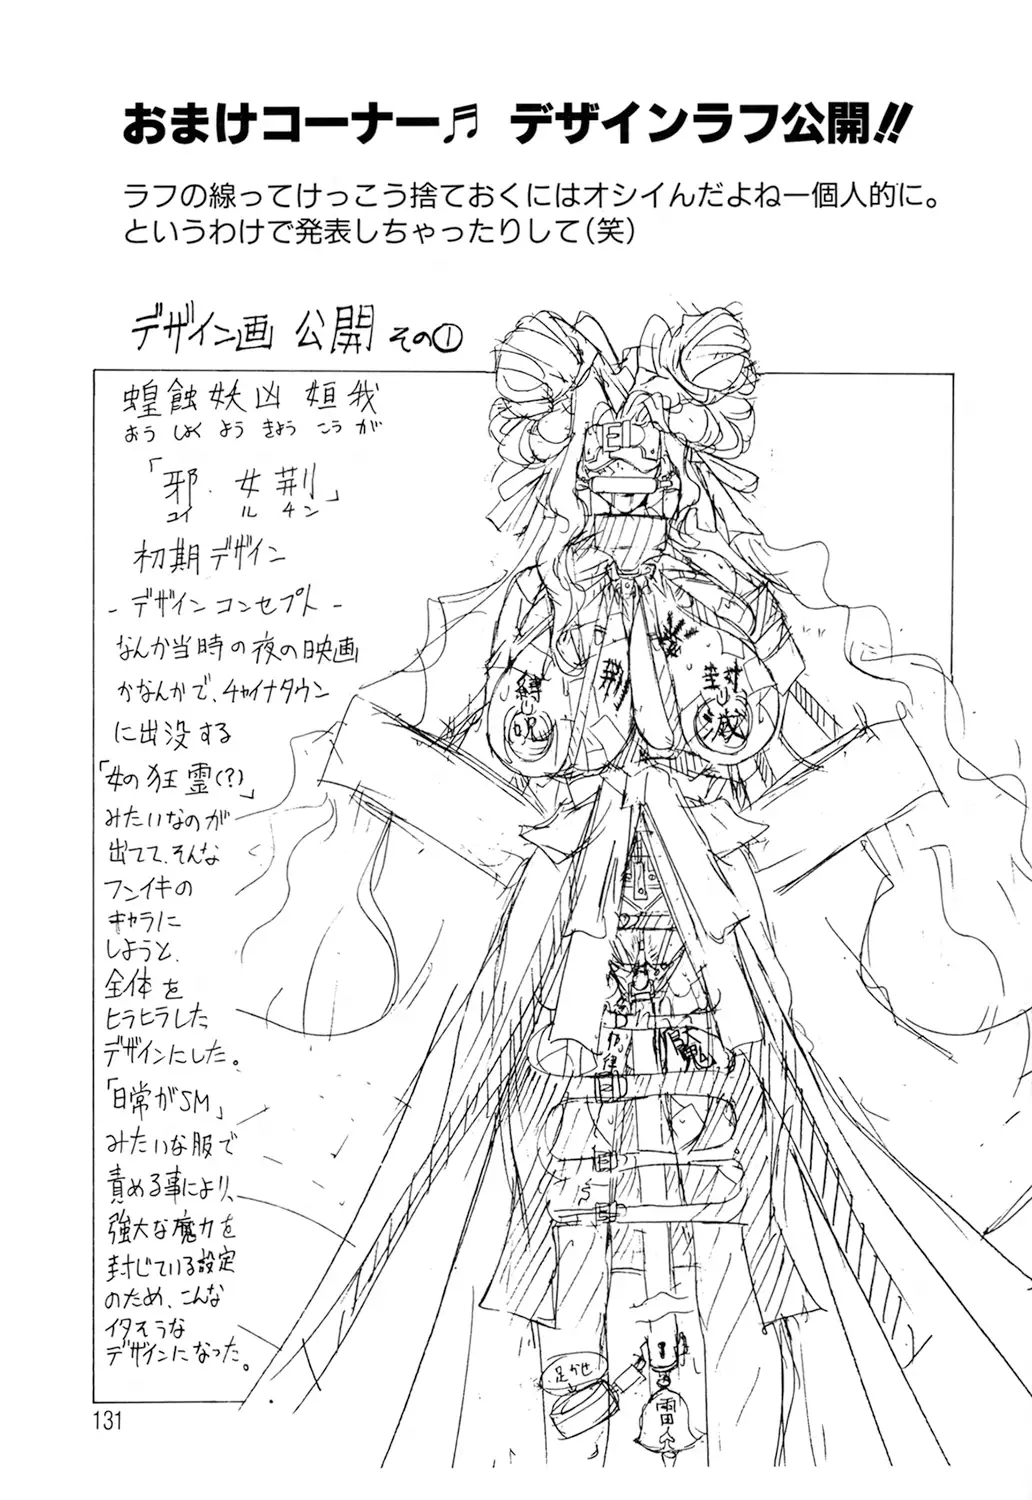 おまけコーナー♬ デザインラフ公開!!
ラフの線ってけっこう捨ておくにはオシイんだよねー個人的に。
というわけで発表しちゃったりして（笑）
デザイン画 公開 その①
蝗蝕妖凶 姮我
おう しょく よう きょう こう が
「邪・女荆」
ユイ ル チン
初期デザイン
- デザインコンセプト -
なんか当時の夜の映画
かなんかで、チャイナタウン
に出没する
「女の狂霊(?)」
みたいなのが
出てて、そんな
フンイキの
キャラに
しようと、
全体を
ヒラヒラした
デザインにした。
「日常がSM」
みたいな服で
責める事により、
強大な魔力を
封じている設定
のため、こんな
イタそうな
デザインになった。
縛
呪
荆
封
滅
魔
足かせ
雷
131